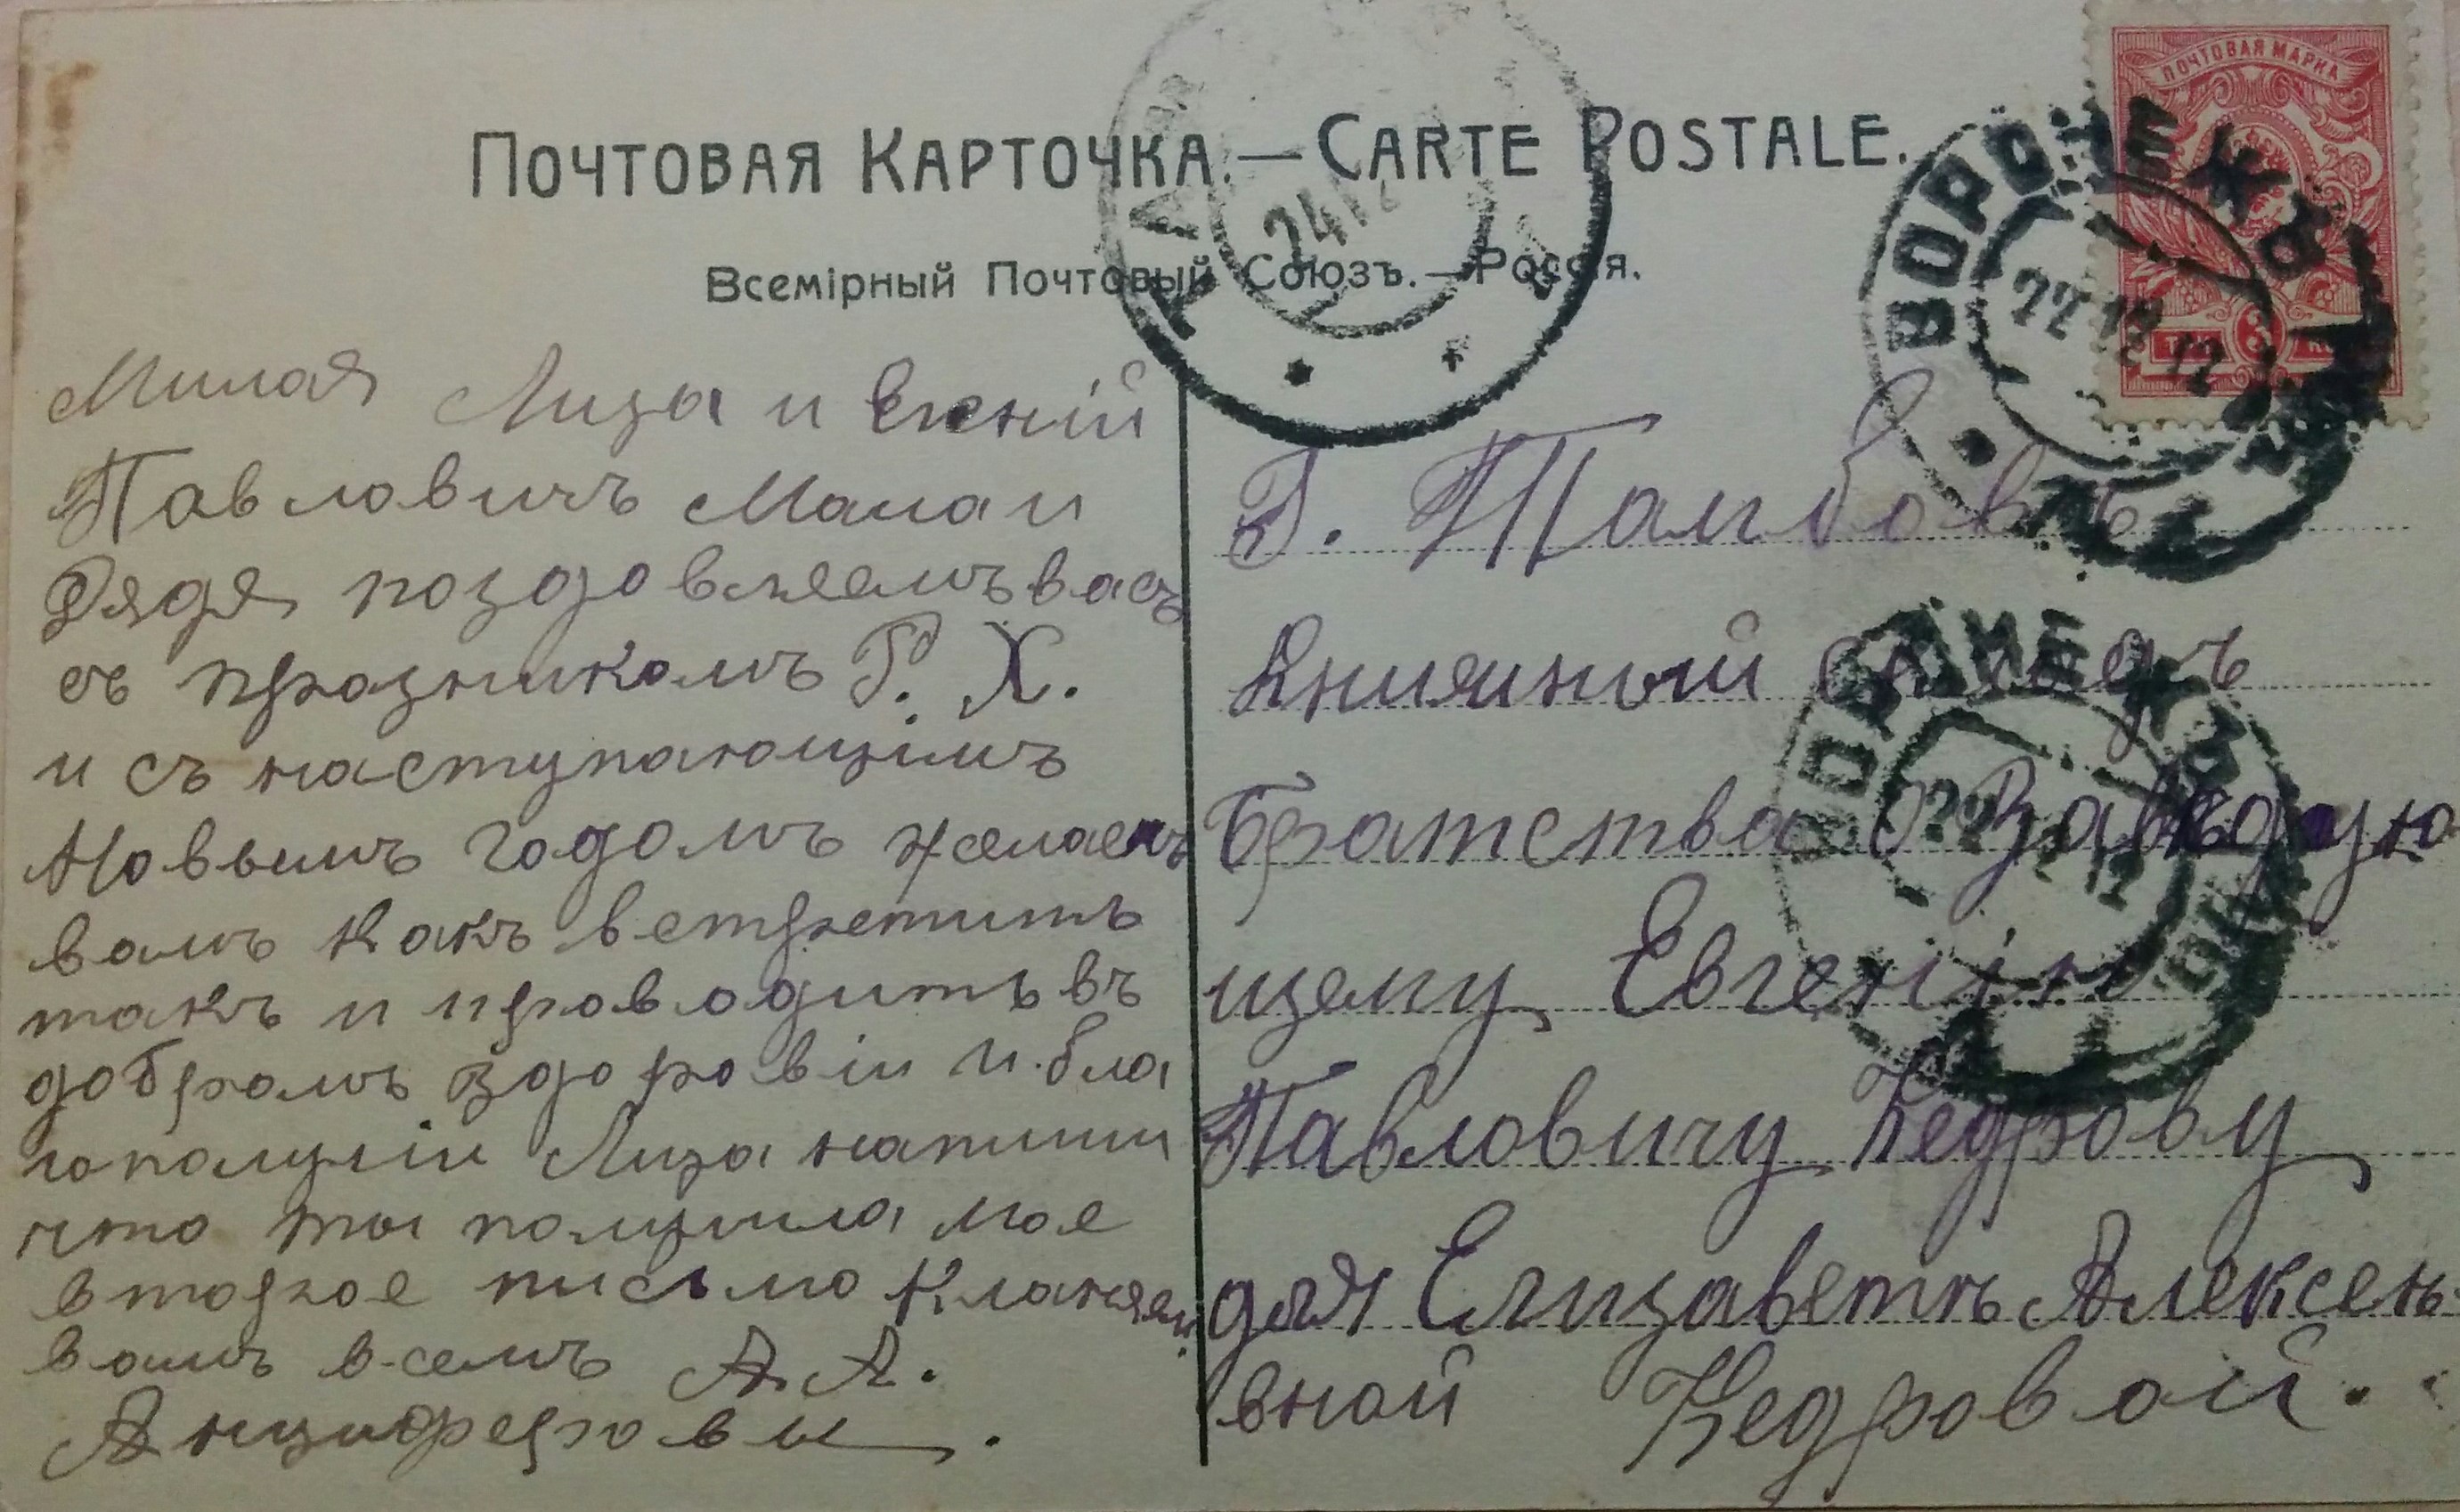 ПОЧТОВАЯ КАРТОЧКА. — CARTE POSTALE.
Всемірный Почтовый Союзъ. — Россія.
ПОЧТОВАЯ МАРКА
ВОРОНЕЖЪ
22 12 12
Милая Лиза и
Павловичъ Мама и
Дядя поздовляемъ васъ
съ празникомъ Р. Х.
и съ наступающимъ
Новымъ годомъ желаемъ
вамъ какъ встретить
такъ и проводить въ
добромъ здоровіи и бла
гополучіи Лиза напиши
что ты получила мое
второе письмо кланяем
вамъ всемъ А А.
Анциферовы.
Г. Тамбовъ
Книжный складъ
Братства Завѣдую
щему Евгенію
Павловичу Кедрову
для Елизаветѣ Алексеѣ-
вной Кедровой.
ВОРОНЕЖЪ